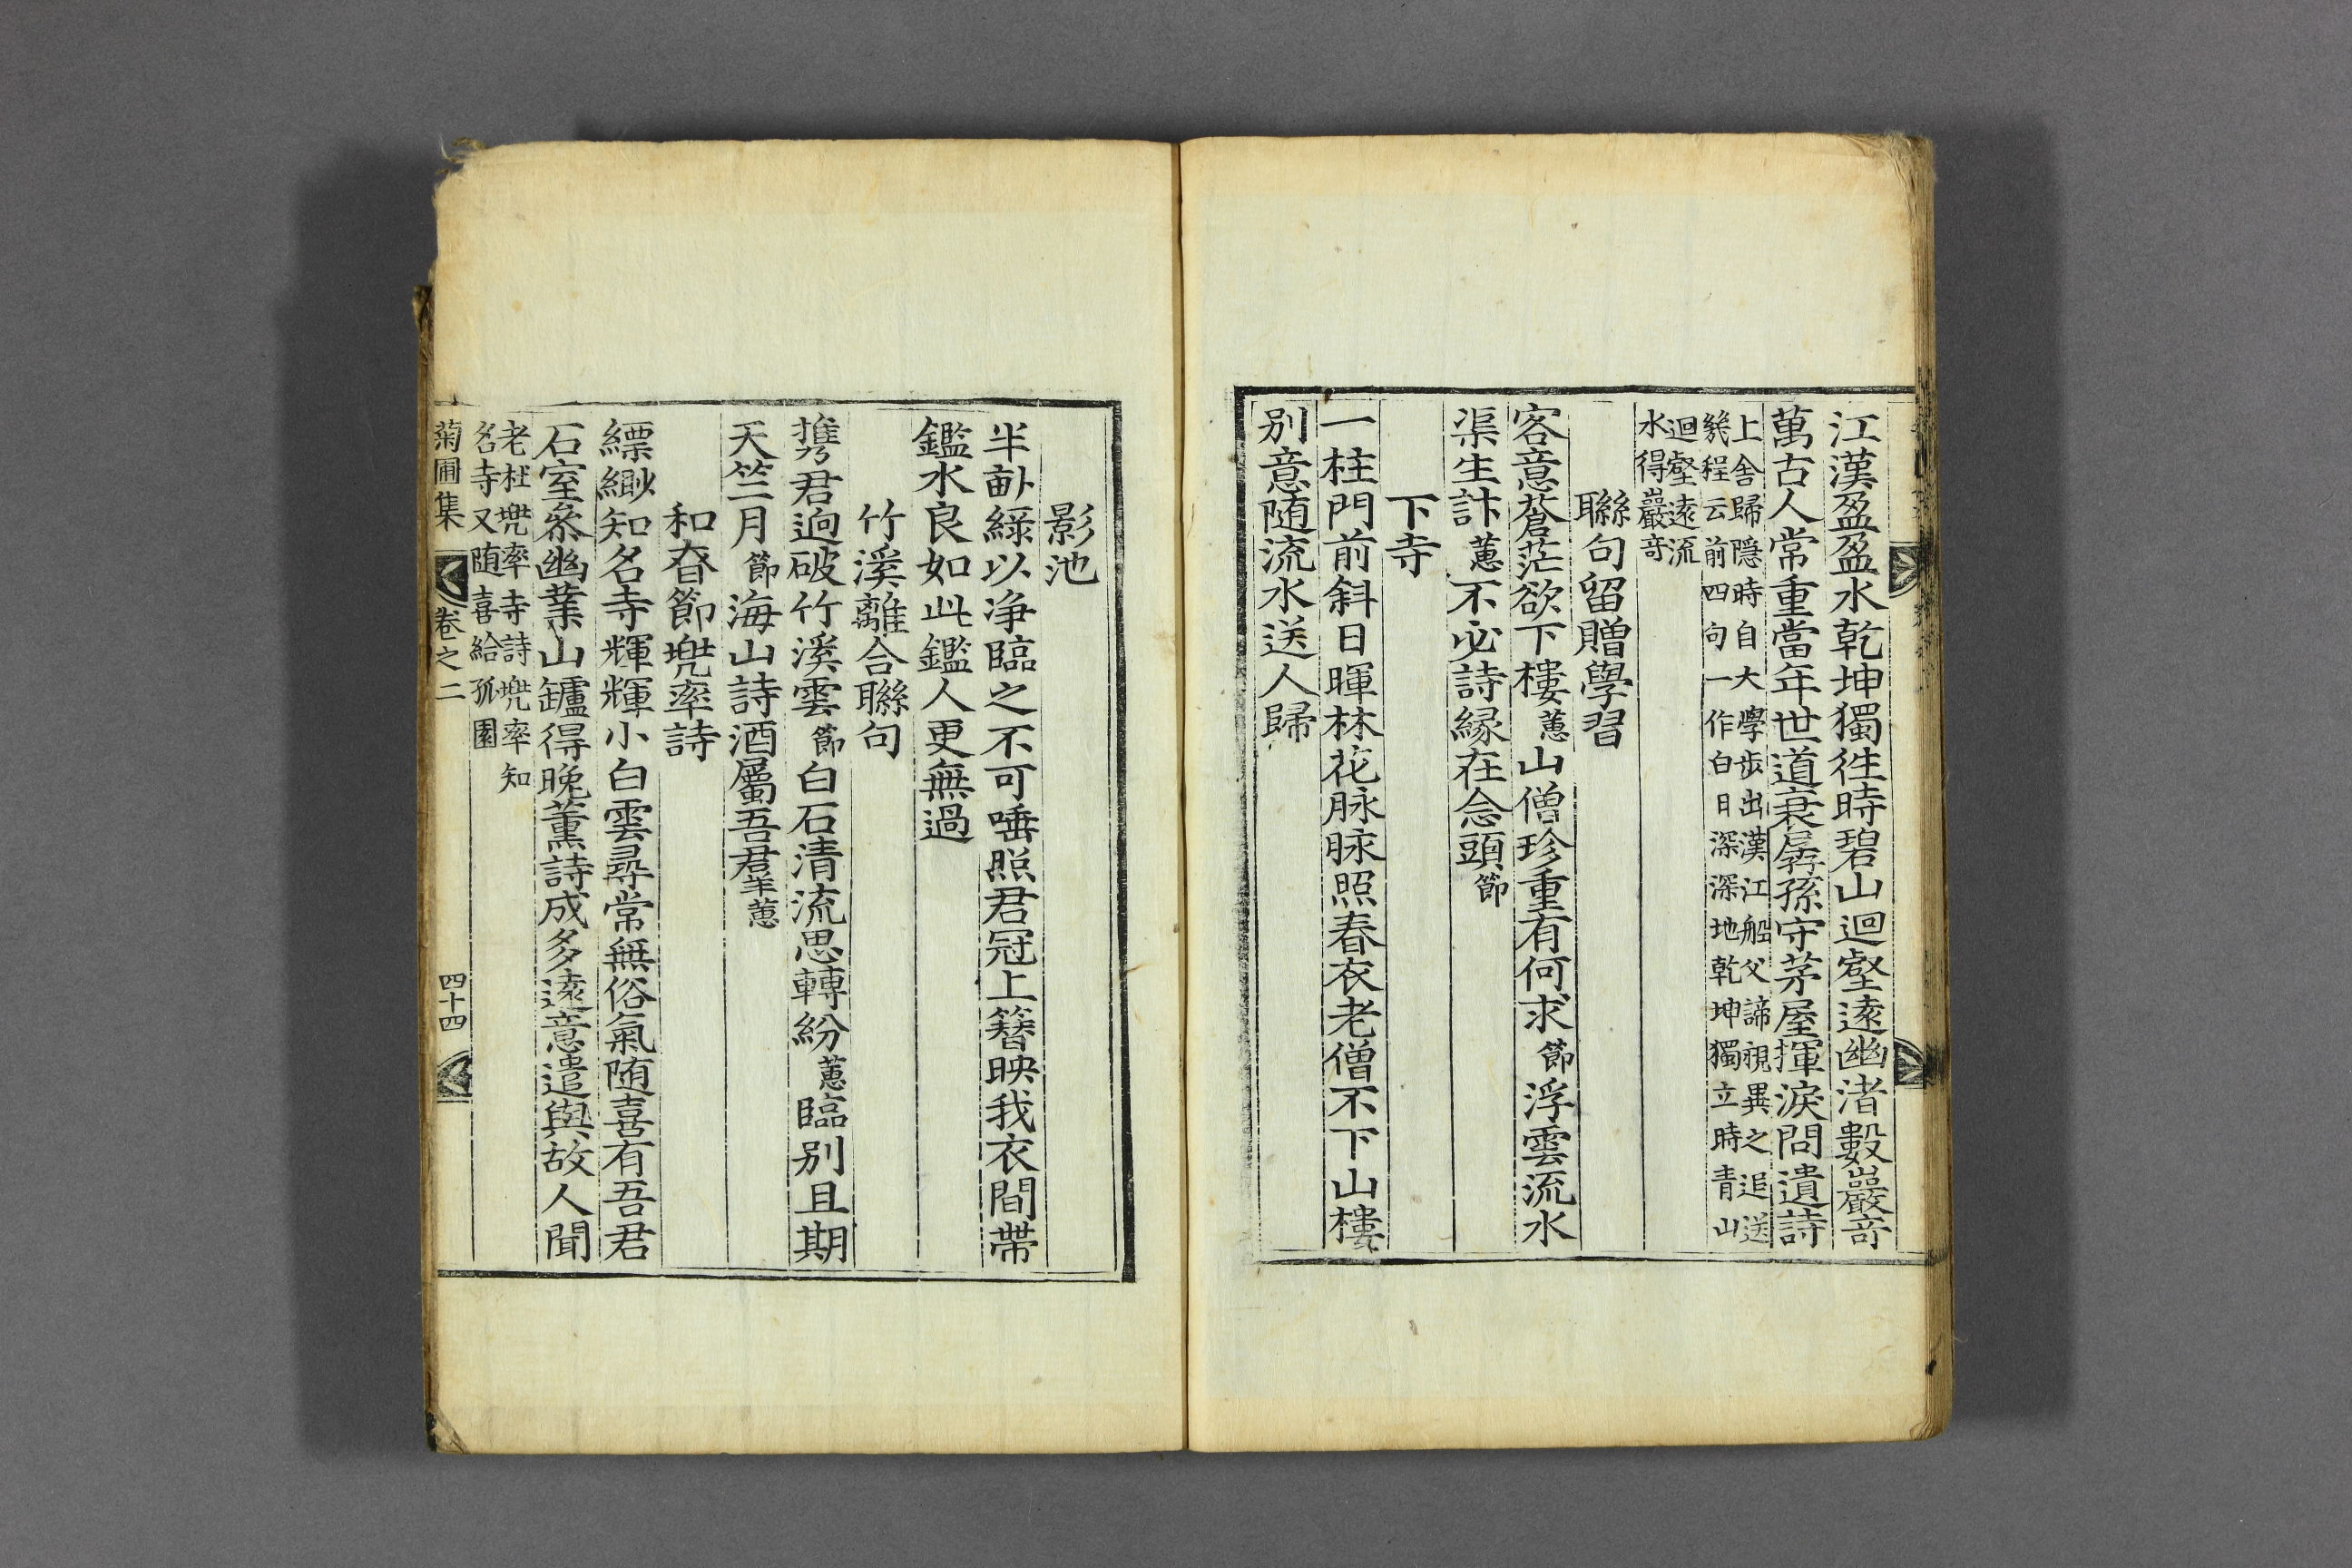 江漢盈盈水乾坤獨徃時碧山迴壑遠幽渚數巖竒
萬古人常重當年世道衰孱孫守茅屋揮淚問遺詩
上舍歸隱時自大學步出漢江船父諦視異之追送
幾程云前四句一作白日深深地乾坤獨立時青山
迴壑遠流
水得巖竒
聯句留贈學習
客意蒼茫欲下樓蕙山僧珍重有何求節浮雲流水
渠生計蕙不必詩緣在念頭節
下寺
一柱門前斜日暉林花脉脉照春衣老僧不下山樓
別意随流水送人歸
影池
半畝綠以净臨之不可唾照君冠上簪映我衣間帶
鑑水良如此鑑人更無過
竹溪離合聯句
携君逈破竹溪雲節白石清流思轉紛蕙臨别且期
天竺月節海山詩酒屬吾君羊蕙
和昚節兠率詩
縹緲知名寺輝輝小白雲尋常無俗氣随喜有吾君
石室叅幽業山罏得晚薰詩成多遠意遣與故人聞
老杜兠率寺詩兠率知
名寺又随喜給孤園
菊圃集
卷之二
四十四